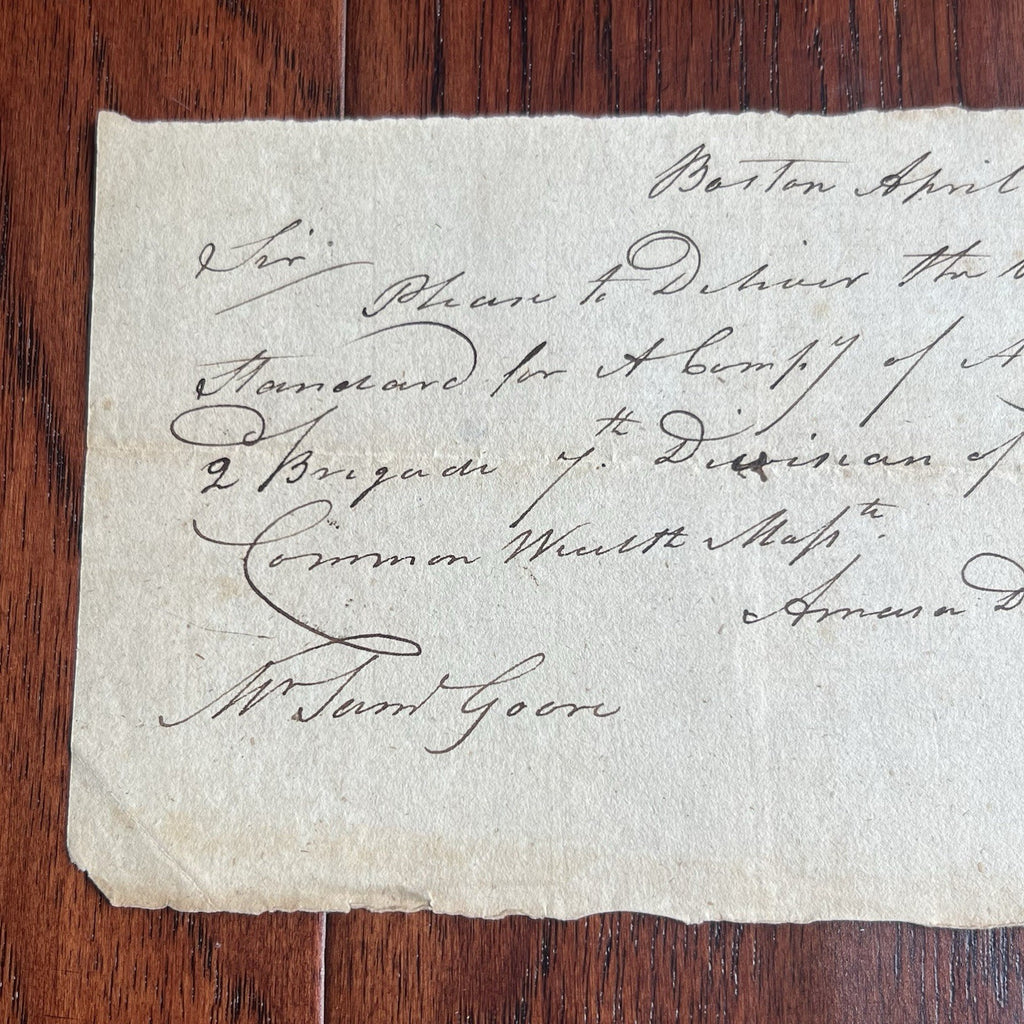 Boston April
Sir
Please to Deliver the
Standard for A Compy of
2 Brigade 7th. Division of
Common Wealth Massth.
Amasa D
Mr Saml Goore